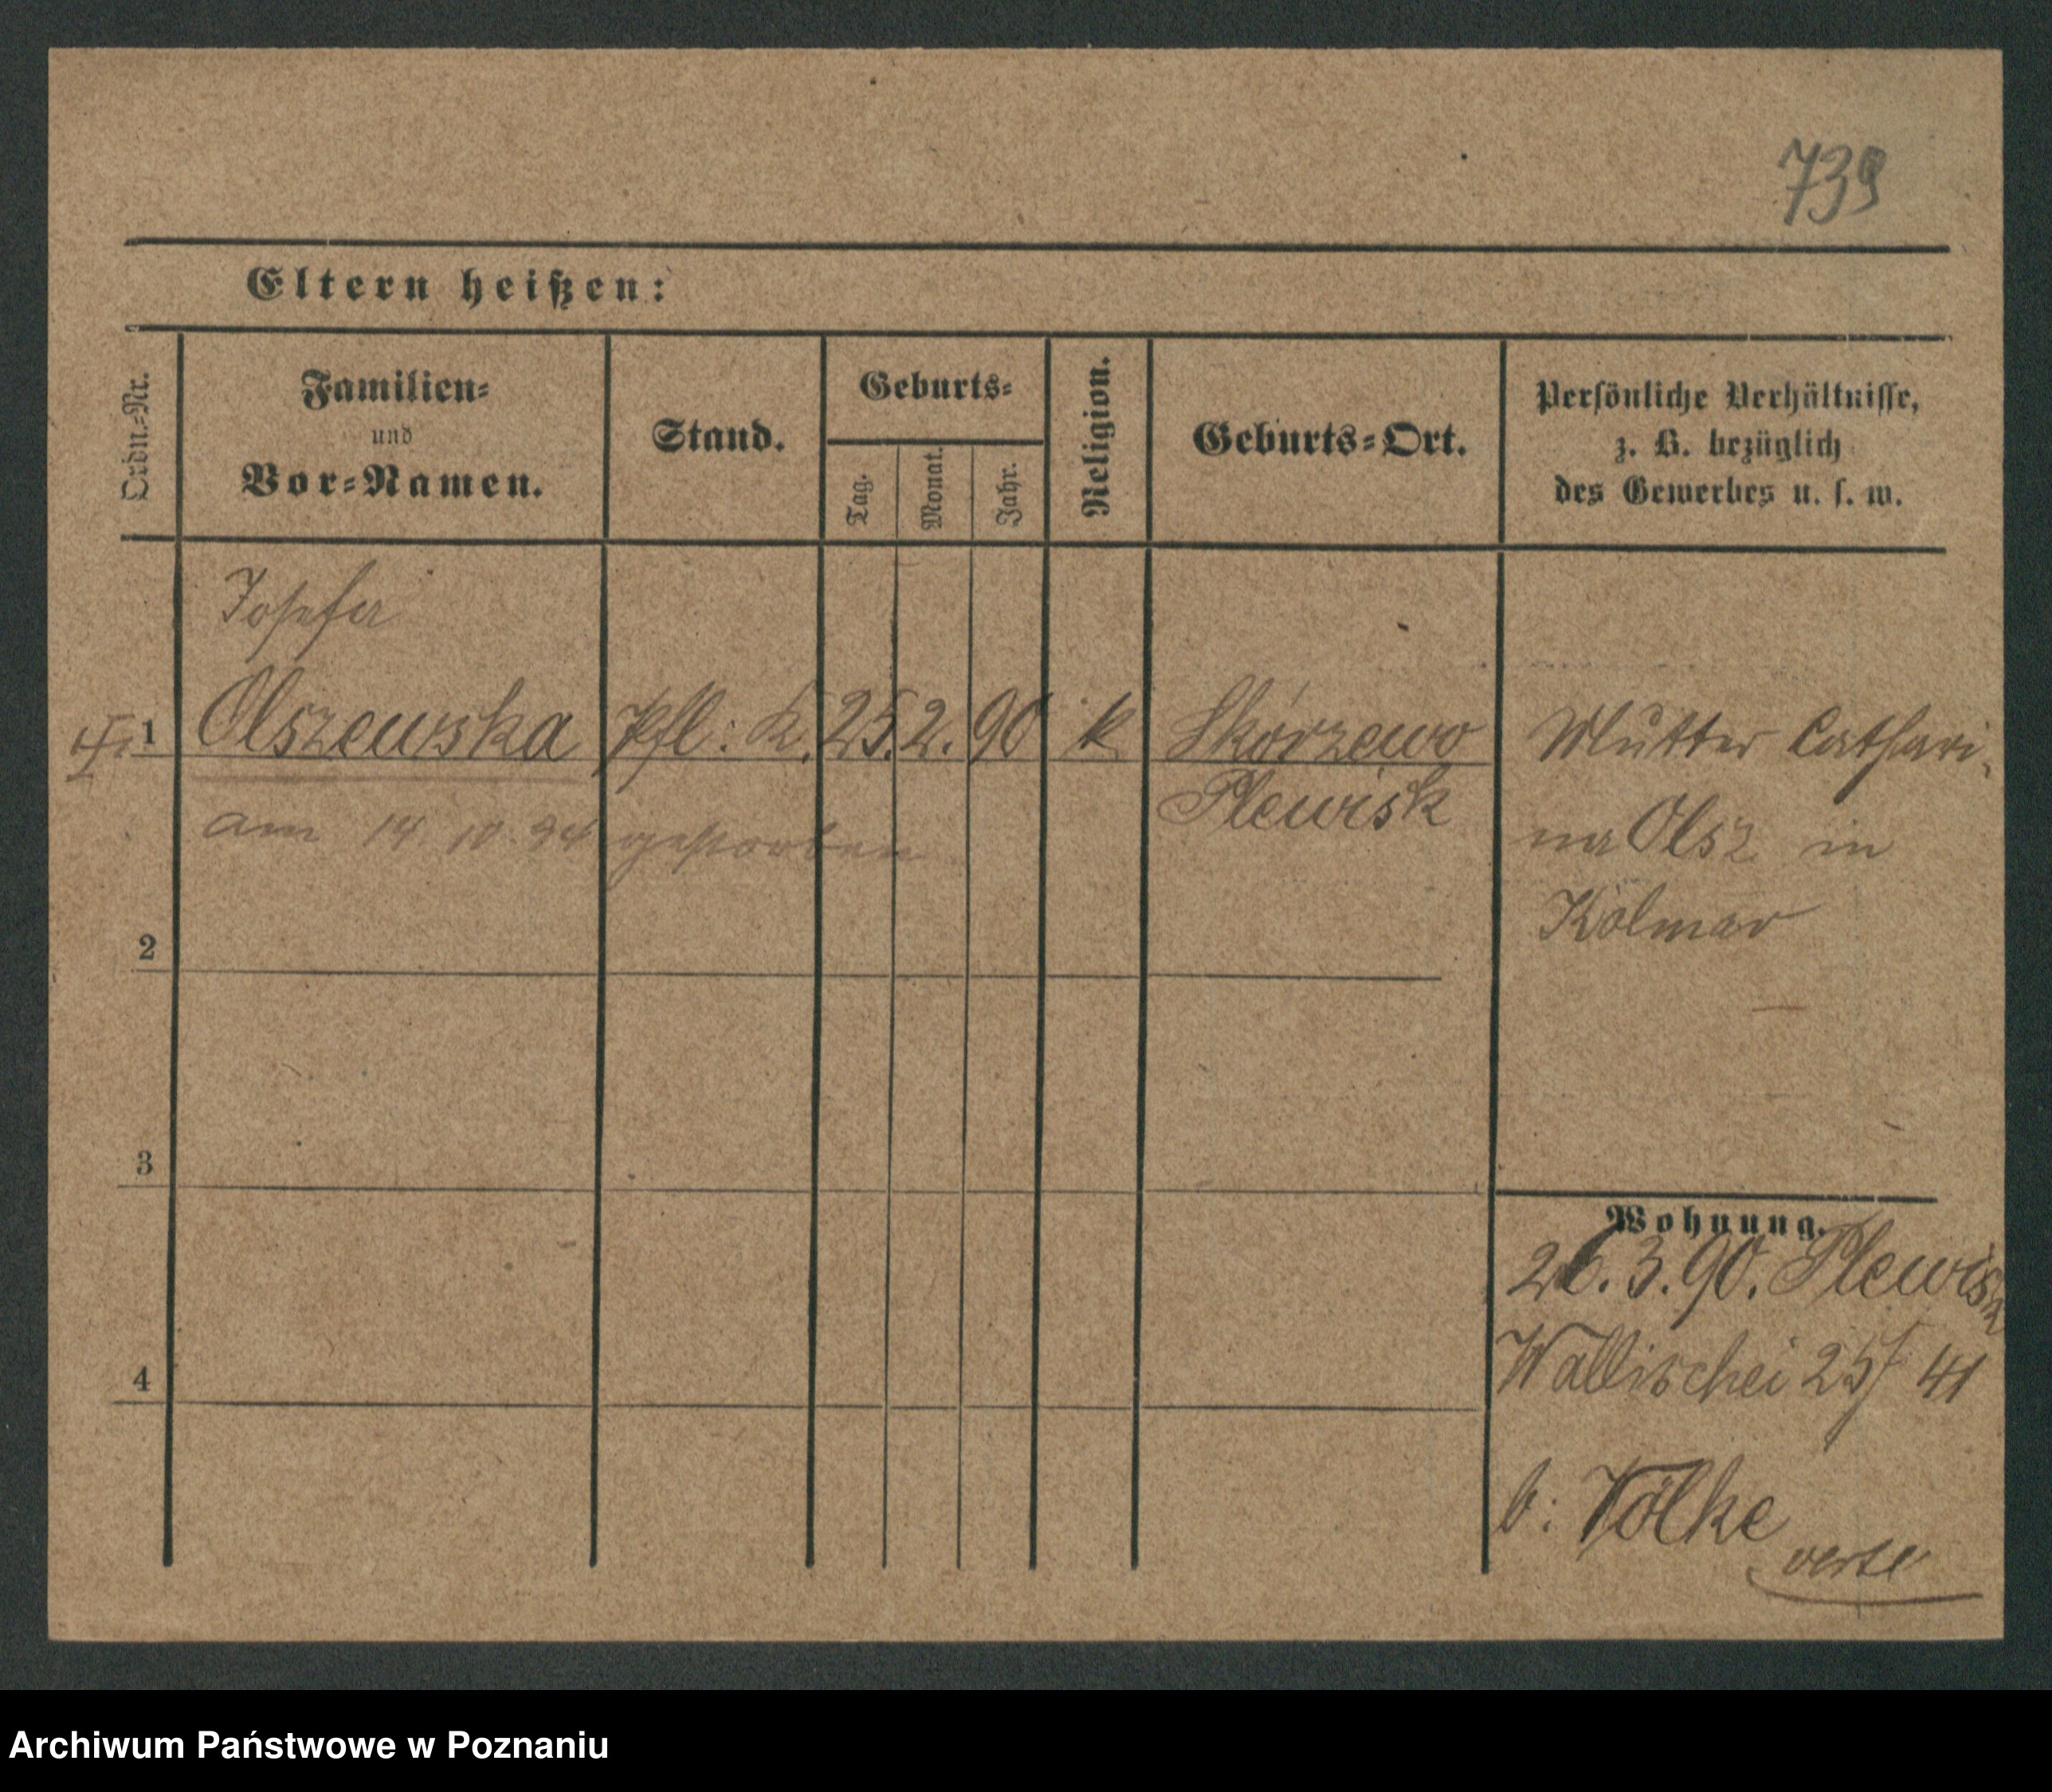 739
Eltern heißen:
Ordn.-Nr.
Familien-
und
Vor-Namen.
Stand.
Geburts-
Tag.
Monat.
Jahr.
Religion.
Geburts-Ort.
Persönliche Verhältnisse,
z. B. bezüglich
des Gewerbes u. s. w.
Josefa
1 Olszewska Pfl: K. 25. 2. 90 k Skórzewo
Plewisk
am 14. 10. 94 gestorben
Mutter Cathari-
na Olsz in
Kolmar
2
3
4
Wohnung.
26. 3. 90. Plewisk
Wallischei 25/ 41
b: Völke
verte
Archiwum Państwowe w Poznaniu